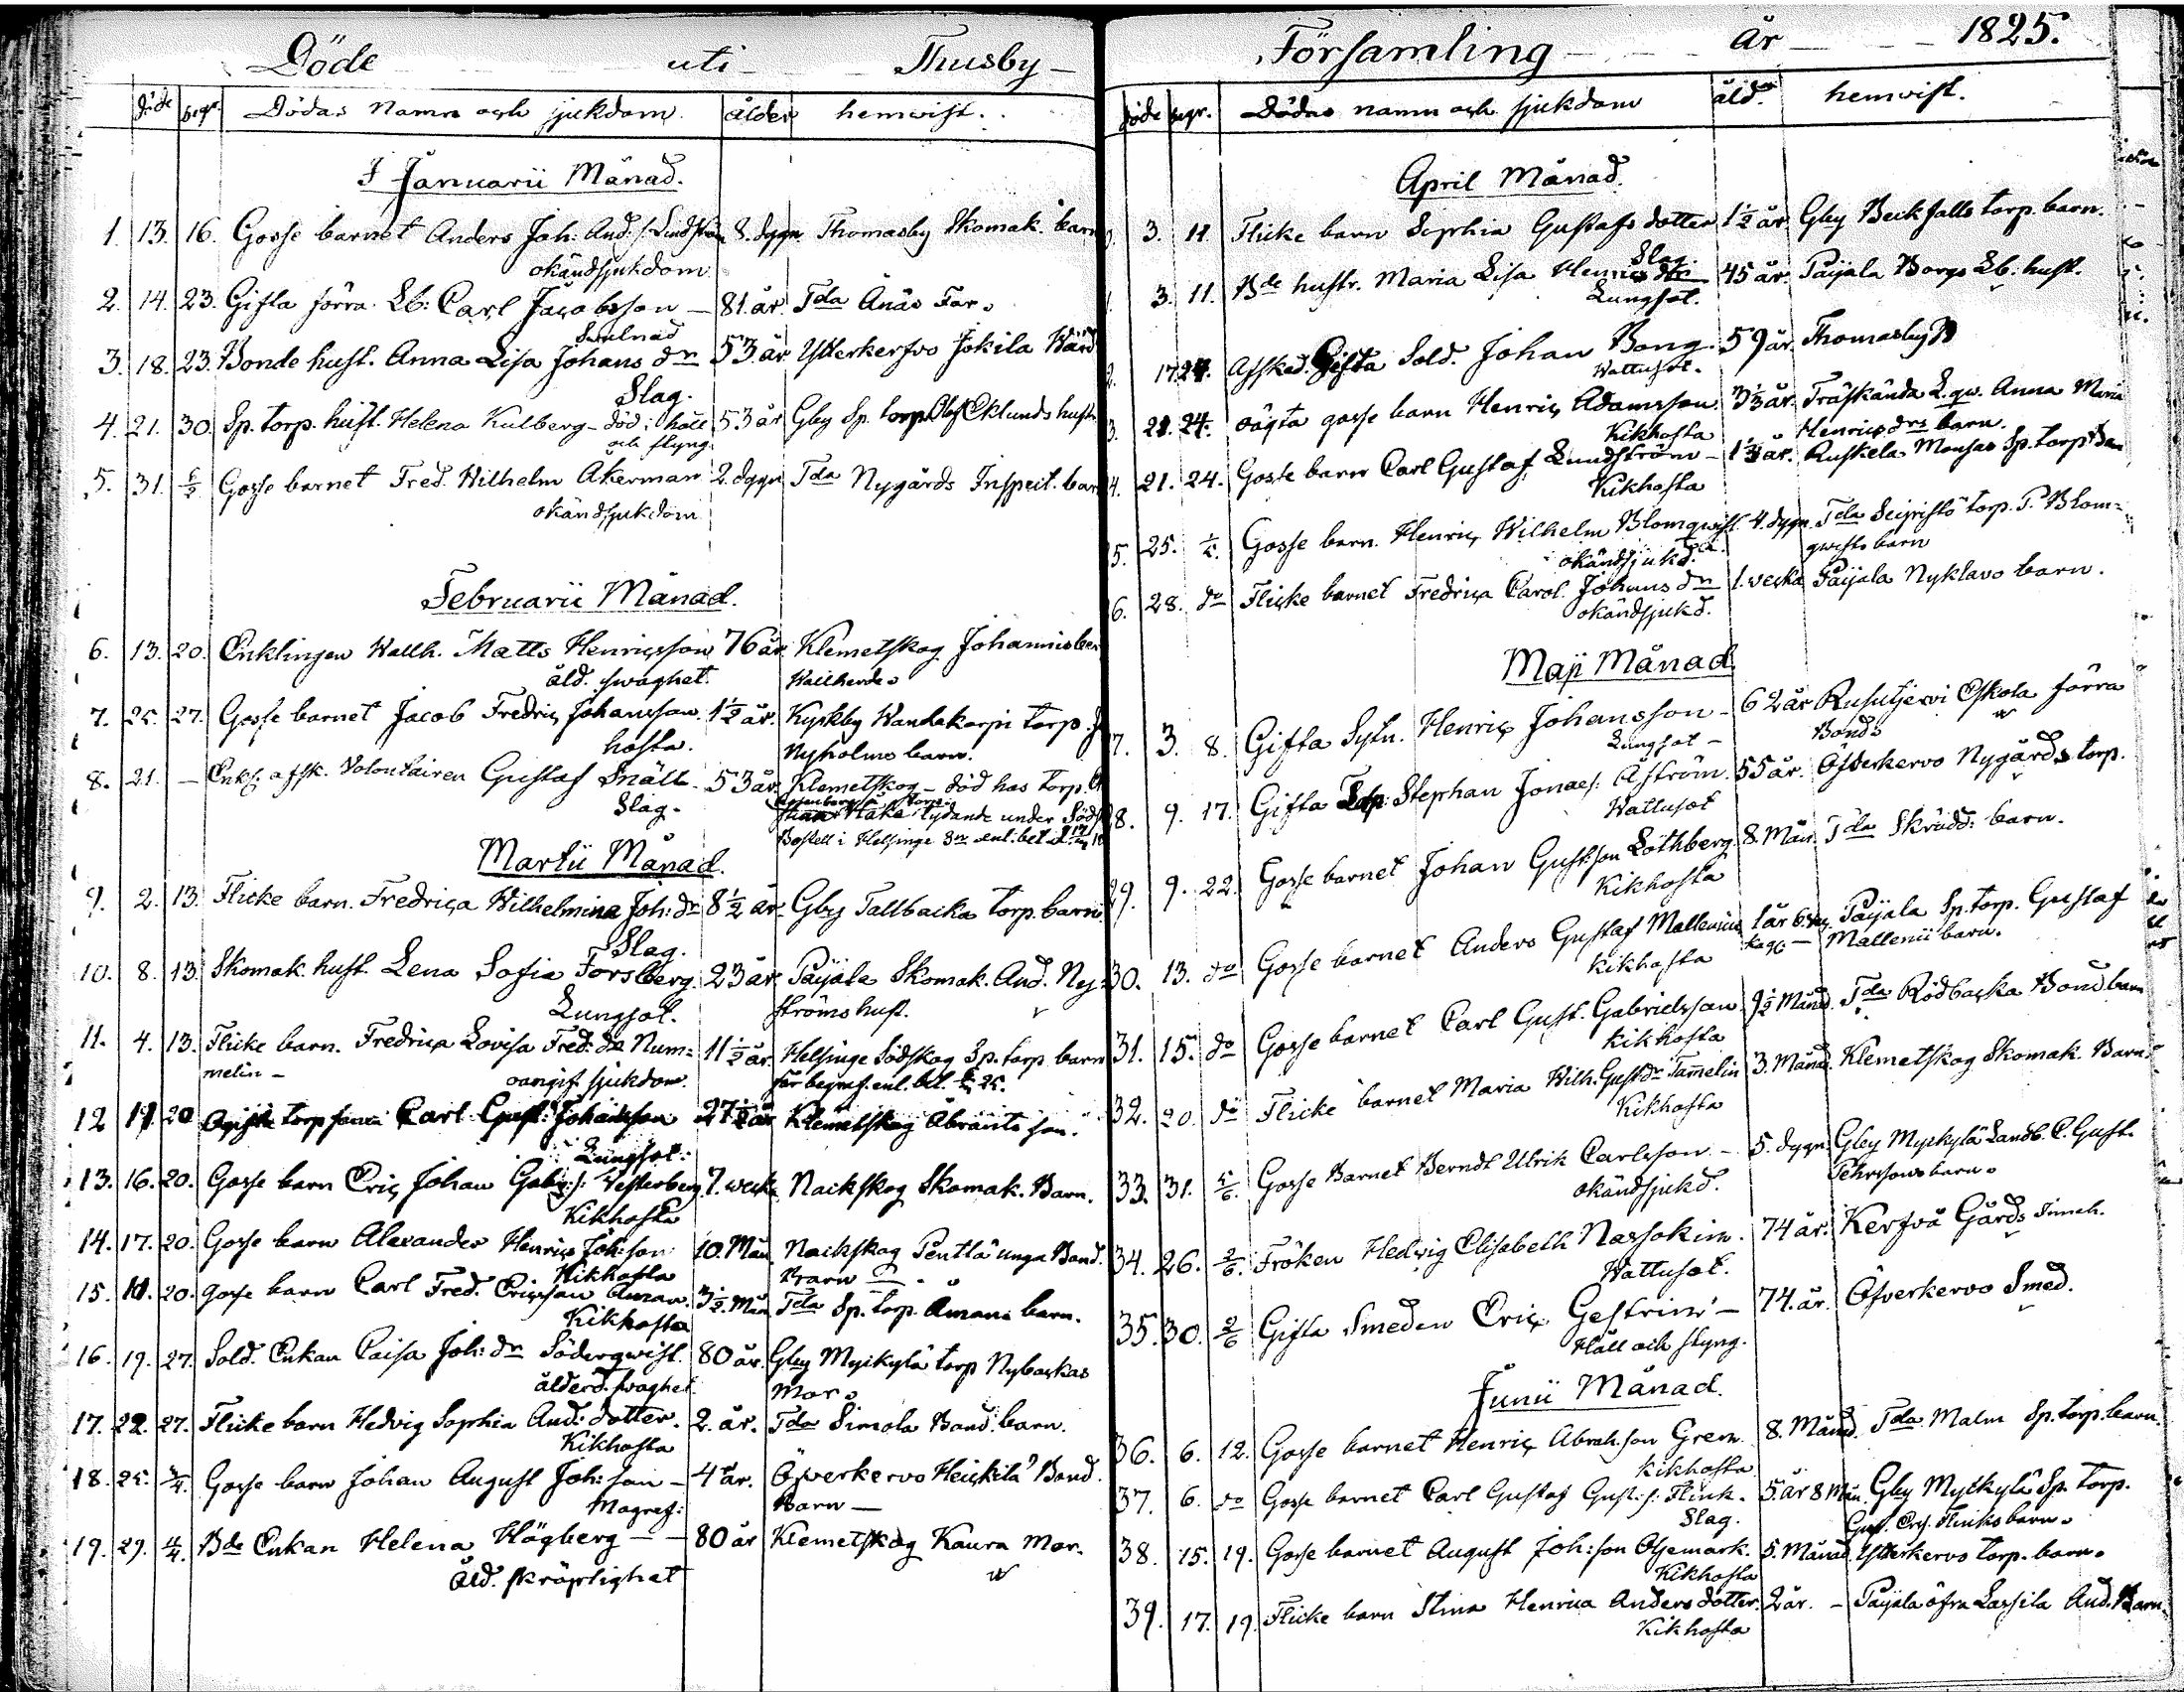 Döde uti Thusby
döde begr. Dödas Namn och sjukdom. ålder hemvist.
I Januarii Månad.
1. 13. 16. Gosse barnet Anders Joh: And. s. Lindström 8. dygn. Thomasby Skomak. barn
okänd sjukdom
2. 14. 23. Gifta förra Lb: Carl Jacobsson — 81. år. Tda Anäs Far.
3. 18. 23. Bonde hust. Anna Lisa Johans dr 53 år Ytterkerfvo Jokila Värd
Slag.
4. 21. 30. Sp. torp. hust. Helena Kulberg - död i håll 53 år Gby Sp. torp. Olof Eklunds hustr
och styng
5. 31. 6/2 Gosse barnet Fred. Wilhelm Åkerman 2. dygn Tda Nygårds Inspect. bar
okänd sjukdom
Februarii Månad.
6. 13. 20. Enklingen Wallh. Matts Henricsson 76 år Klemetskog Johannisber
åld. swaghet. Wallherde
7. 25. 27. Gosse barnet Jacob Fredric Johansson. 1½ år. Kyrkby Wandakorpi torp.
hosta. Nyholms barn.
8. 21. — Enkl. afsk. Volontairen Gustaf Snäll. 53 år. Klemetskog - död hos torp.
Slag. Håka lydande under
Bostell i Helsinge
Martii Månad.
9. 2. 13. Flicke barn. Fredrica Wilhelmina Joh: dr 8½ år. Gby Tallbacka torp. barn.
Slag.
10. 8. 13. Skomak. hust. Lena Sofia Forsberg. 23 år. Paijala Skomak. And. Ny-
Lungsot. ströms hust.
11. 4. 13. Flicke barn. Fredrica Lovisa Fred: dr Num= 11½ år. Helsinge Södskog Sp. torp. barn
melin — oangif. sjukdom. här begraf. enl. bet.
12 11 20 Ogifte torp sonen Carl Gust: Johansson 27½ år Klemetskog Åbrants son.
Lungsot.
13. 16. 20. Gosse barn Eric Johan Gabr: s. Westerberg. 7. weck. Nackskog Skomak. Barn.
Kikhosta
14. 17. 20. Gosse barn Alexander Henric Joh: son 10. Mån. Nackskog Penttä unga Bond.
Kikhosta Barn
15. 11. 20. Gosse barn Carl Fred. Ericsson Åman. 3½ Mån Tda Sp. torp. Åmans barn.
Kikhosta
16. 19. 27. Sold. Enkan Caisa Joh: dr Söderqwist. 80 år. Gby Myckylä torp Nybackas
ålderd. swaghet. Mor.
17. 22. 27. Flicke barn Hedvig Sophia And: dotter. 2. år. Tda Simola Bond. barn.
Kikhosta
18. 25. 4/4. Gosse barn Johan August Joh: son — 4 år. Öfverkervo Heickilä Bond.
Magref: Barn —
19. 29. 4/4. Bde Enkan Helena Högberg — 80 år Klemetskog Kaura Mor.
Åld. skröplighet
Församling år 1825.
döde begr. Dödas namn och sjukdom åld. hemvist.
April Månad.
3. 11 Flicke barn Sophia Gustafs dotter 1½ år. Gby Beckfalls torp. barn.
Slag.
3. 11. Bde hustr. Maria Lisa Henrics dr 45 år. Paijala Borgs Lb: hust.
Lungsot.
17. 24. Afsked. Gifta Sold. Johan Bong. 59 år. Thomasby
Wattusot.
21. 24. oägta gosse barn Henric Adamsson. 3⅓ år. Träskända L. qw. Anna Maria
Kikhosta Henrics drs barn.
4. 21. 24. Gosse barn Carl Gustaf Lundström — 1⅓ år. Ruskela Monsas Sp. torp Barn
Kikhosta
5. 25. Gosse barn. Henric Wilhelm Blomqwist 4. dygn. Tda torp. P. Blom=
okänd sjukd. qwists barn
6. 28. do Flicke barnet Fredrica Carol. Johans dr 1. wecka Paijala Nyklavo barn.
okänd sjukd.
Maji Månad
7. 3. 8. Gifta Sytn. Henric Johansson — 62 år Rusutjervi Eskola förra
Lungsot — Bond
28. 9. 17. Gifta Stephan Jonaes: Åström. 55 år. Öfverkervo Nygårds torp.
Wattusot
29. 9. 22. Gosse barnet Johan Gust: son Löthberg. 8. Mån. Tda Skrädd: barn.
Kikhosta
30. 13. do Gosse barnet Anders Gustaf Mallenius 1 år 6. Paijala Sp. torp. Gustaf
kikhosta Mallenii barn.
31. 15. do Gosse barnet Carl Gust. Gabrielsson. 9½ Månd. Tda Rödbacka Bond barn
kikhosta
32. 20. do Flicke barnet Maria Wilh. Gust dr Tamelin 3. Månad. Klemetskog Skomak. Barn
Kikhosta
33. 31. 5/6. Gosse Barnet Berndt Ulrik Carlsson. — 5. dygn. Gby Myckylä Landb. C. Gust.
okänd sjukd. Pehrssons barn.
34. 26. 2/6. Fröken Hedvig Elisabeth Nassokin. 74 år. Kerfvå Gårds
Wattusot.
35. 30. 2/6 Gifta Smeden Eric Gestrin — 74. år. Öfverkervo Smed.
Håll och styng.
Junii Månad.
36. 6. 12. Gosse barnet Henric Abrah. son Gren 8. Månd. Tda Malm Sp. torp. barn
Kikhosta
37. 6. do Gosse barnet Carl Gustaf Gust: s. Flink. 5. år 8 Mån. Gby Myckylä Sp. torp.
Slag. Flinks barn.
38. 15. 19. Gosse barnet August Joh: son Oxemark. 5. Månad. Ytterkervo torp. barn.
Kikhosta
39. 17. 19. Flicke barn Stina Henrica Anders dotter. 2 år. — Paijala öfra Lassila And. Barn.
Kikhosta